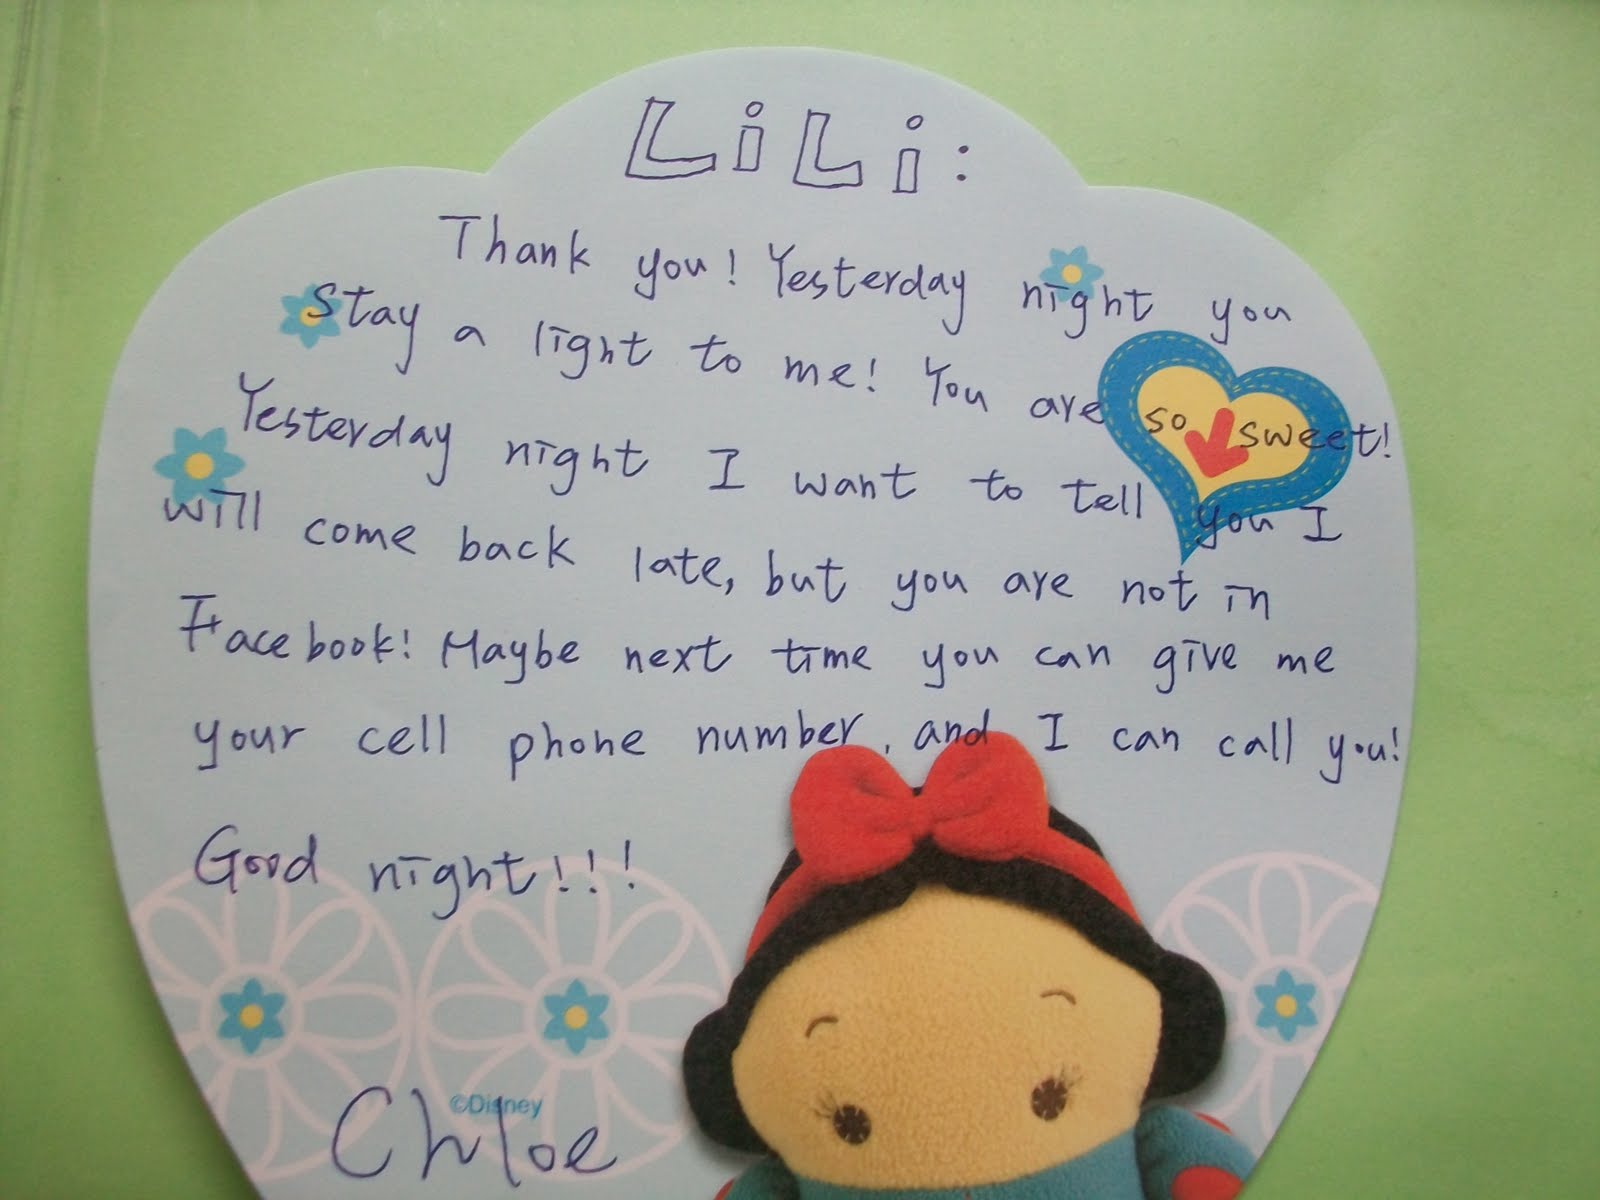 LiLi:
Thank you! Yesterday night you
Stay a light to me! You are so sweet!
Yesterday night I want to tell you I
will come back late, but you are not in
Facebook! Maybe next time you can give me
your cell phone number, and I can call you!
Good night!!!
©Disney
Chloe